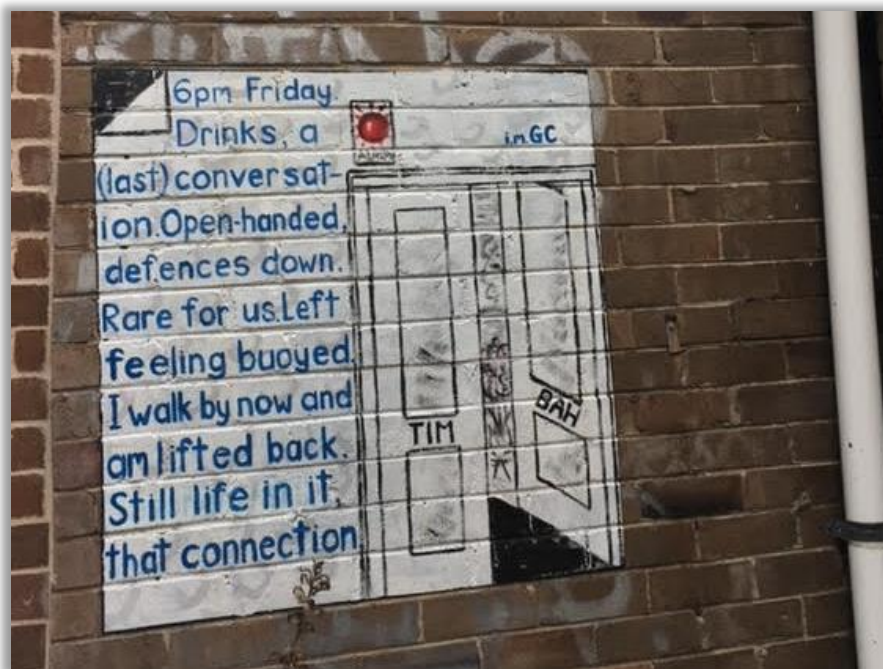 6pm Friday.
Drinks, a
(last) conversat-
ion. Open-handed,
defences down.
Rare for us. Left
feeling buoyed.
I walk by now and
am lifted back.
Still life in it,
that connection
i.m. GC
TIM
BAH